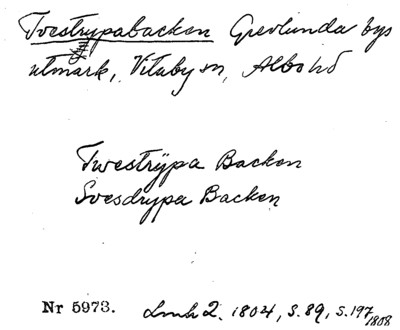 Tvestrypabacken Grevlunda bys
utmark, Vitaby sn, Albo hd
Twestrÿpa Backen
Svesdrypa Backen
Nr 5973. Lmh 2. 1804, s. 89, s. 197
1808